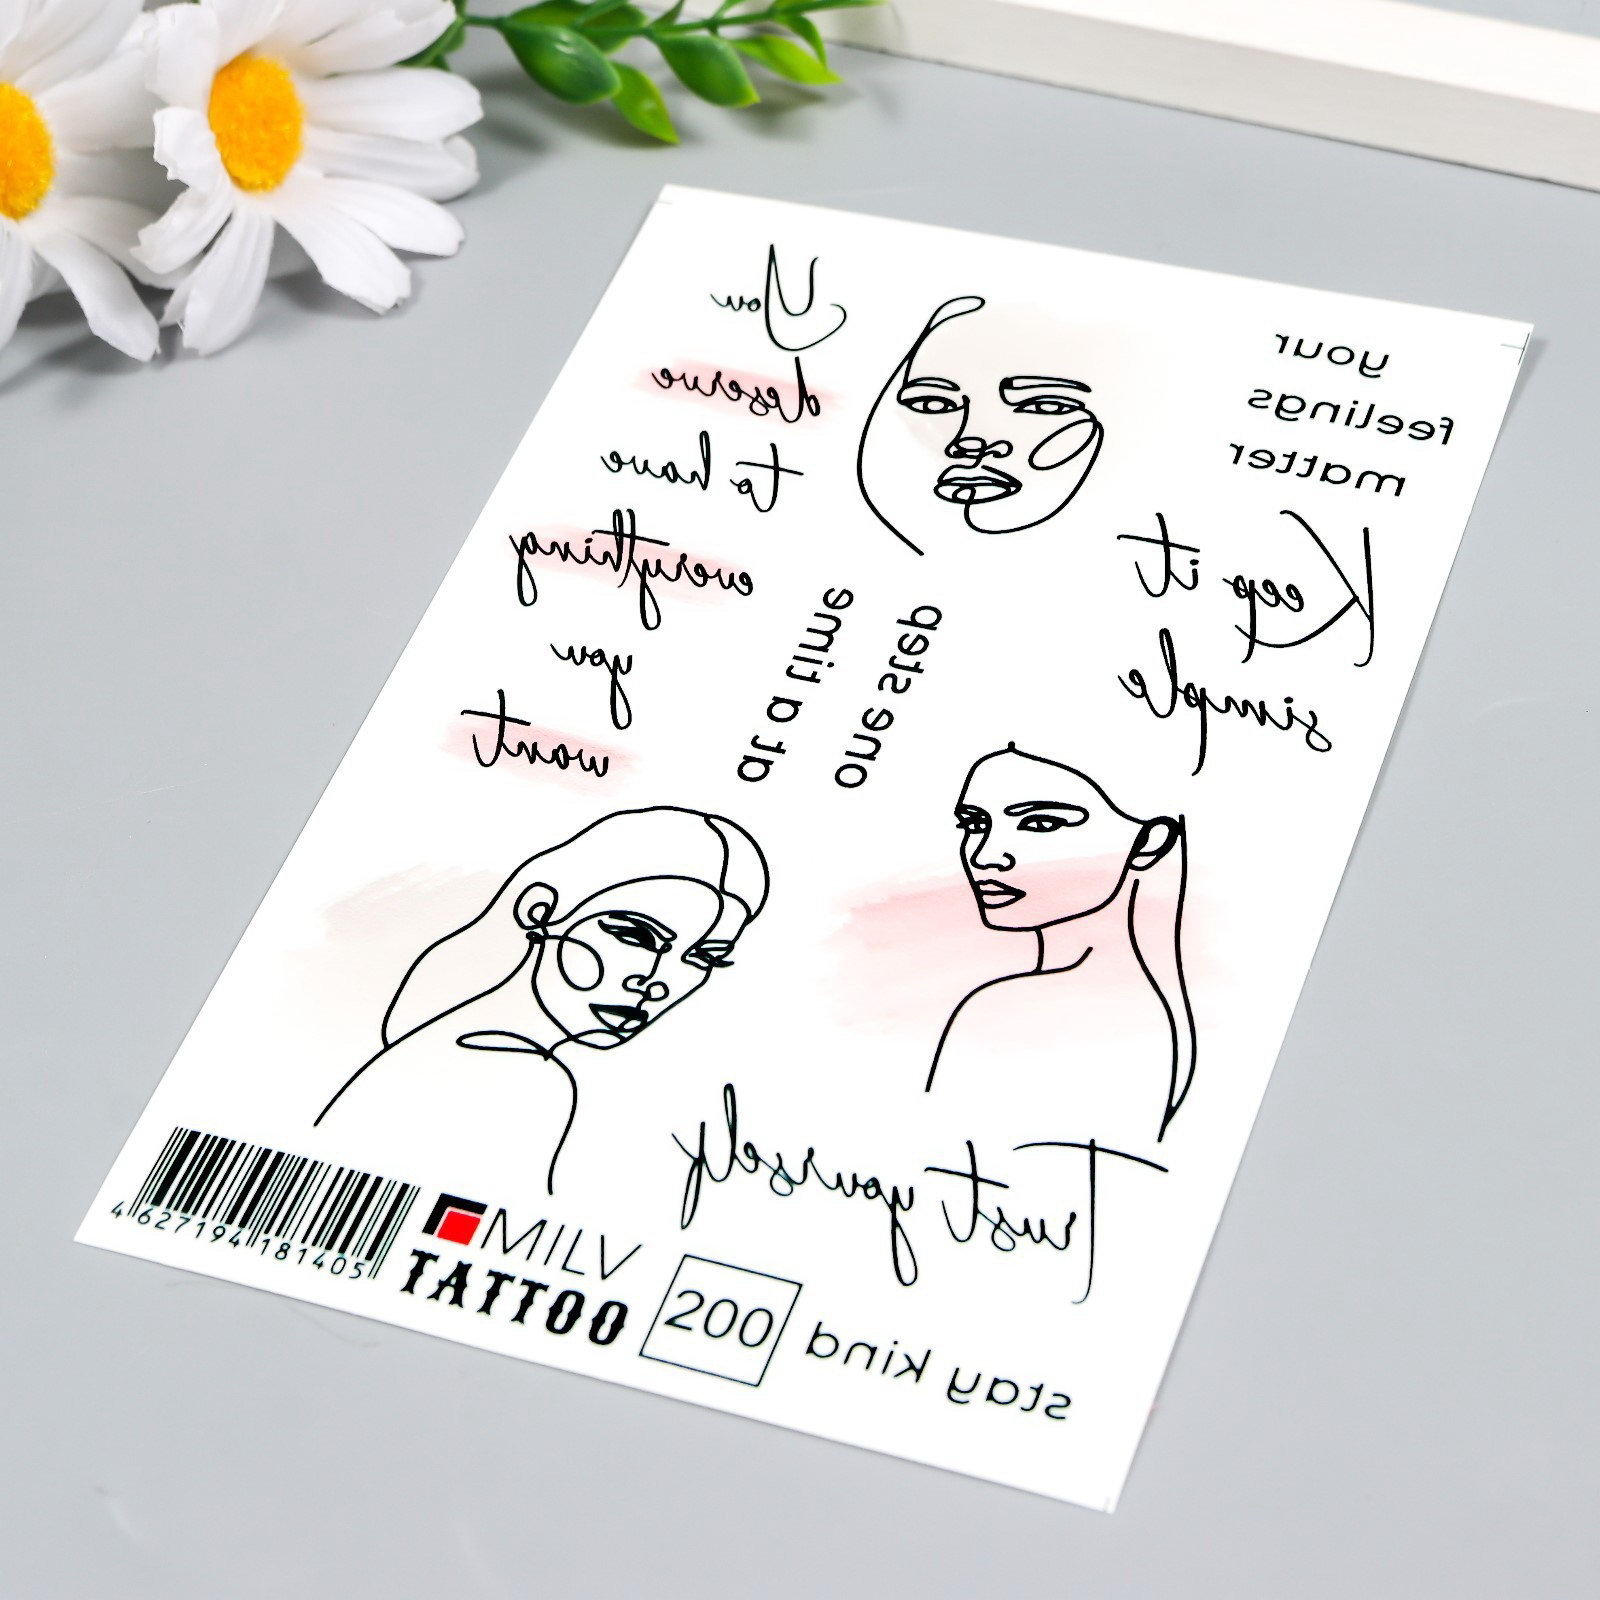 You
deserve
to have
everything
you
want
your
feelings
matter
Keep it
simple
one step
at a time
Trust yourself
stay kind
4 627194 181405
MILV
TATTOO
200